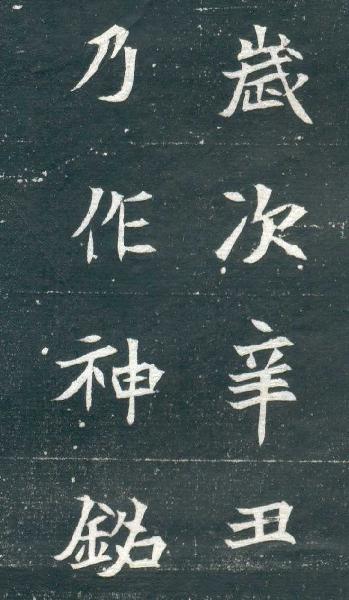 歲次辛丑
乃作神銘